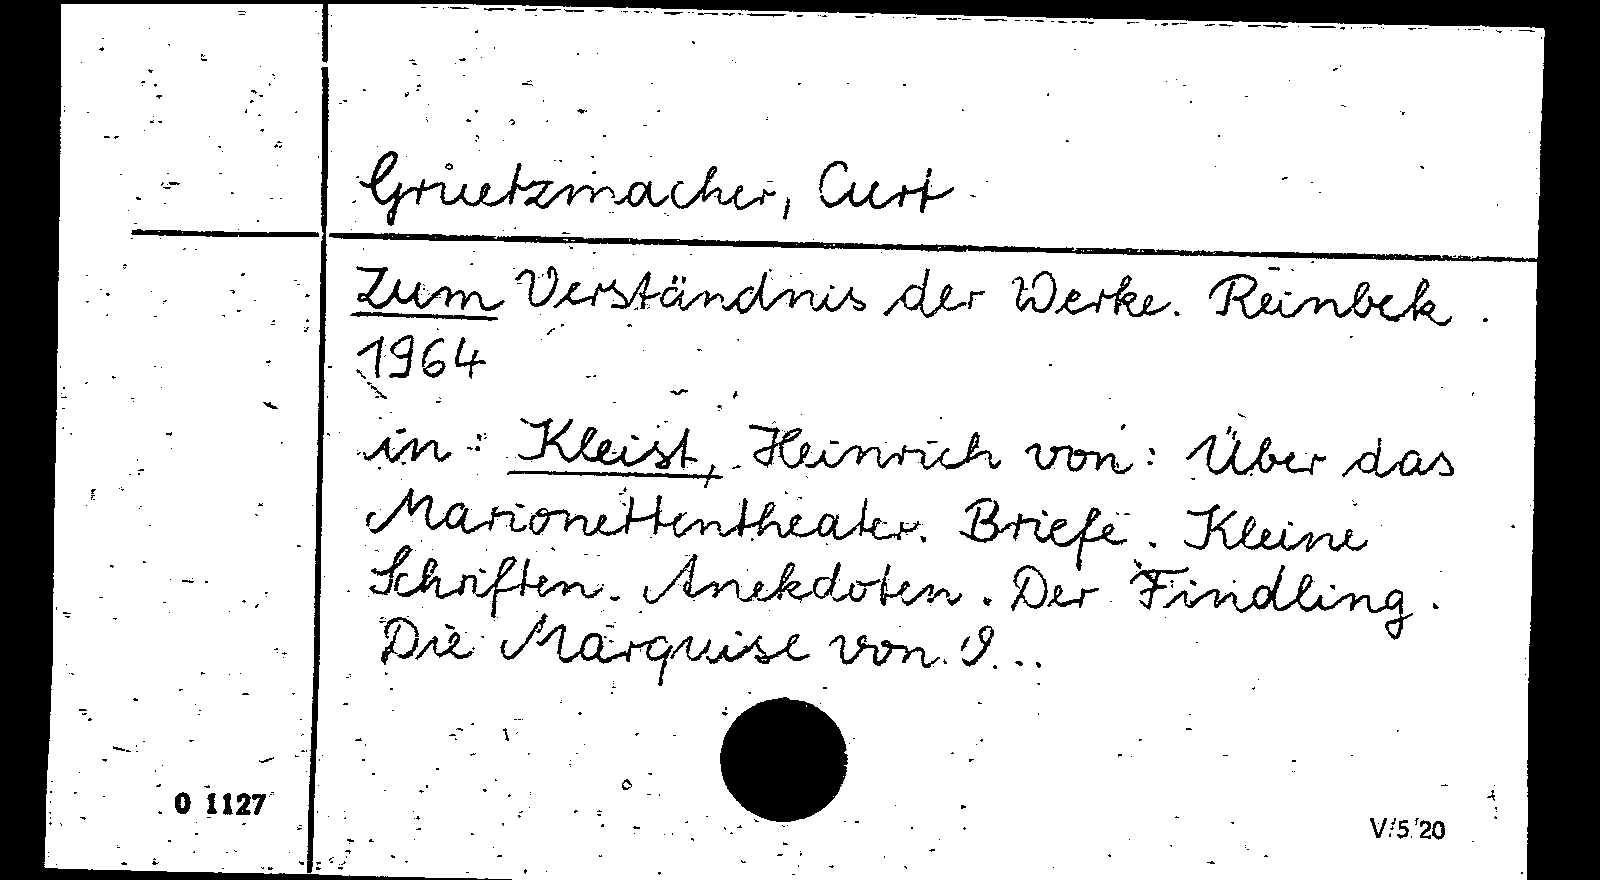 Gruetzmacher, Curt
Zum Verständnis der Werke. Reinbek.
1964
in: Kleist, Heinrich von: Über das
Marionettentheater. Briefe. Kleine
Schriften. Anekdoten. Der Findling.
Die Marquise von O...
O 1127
V/5/20